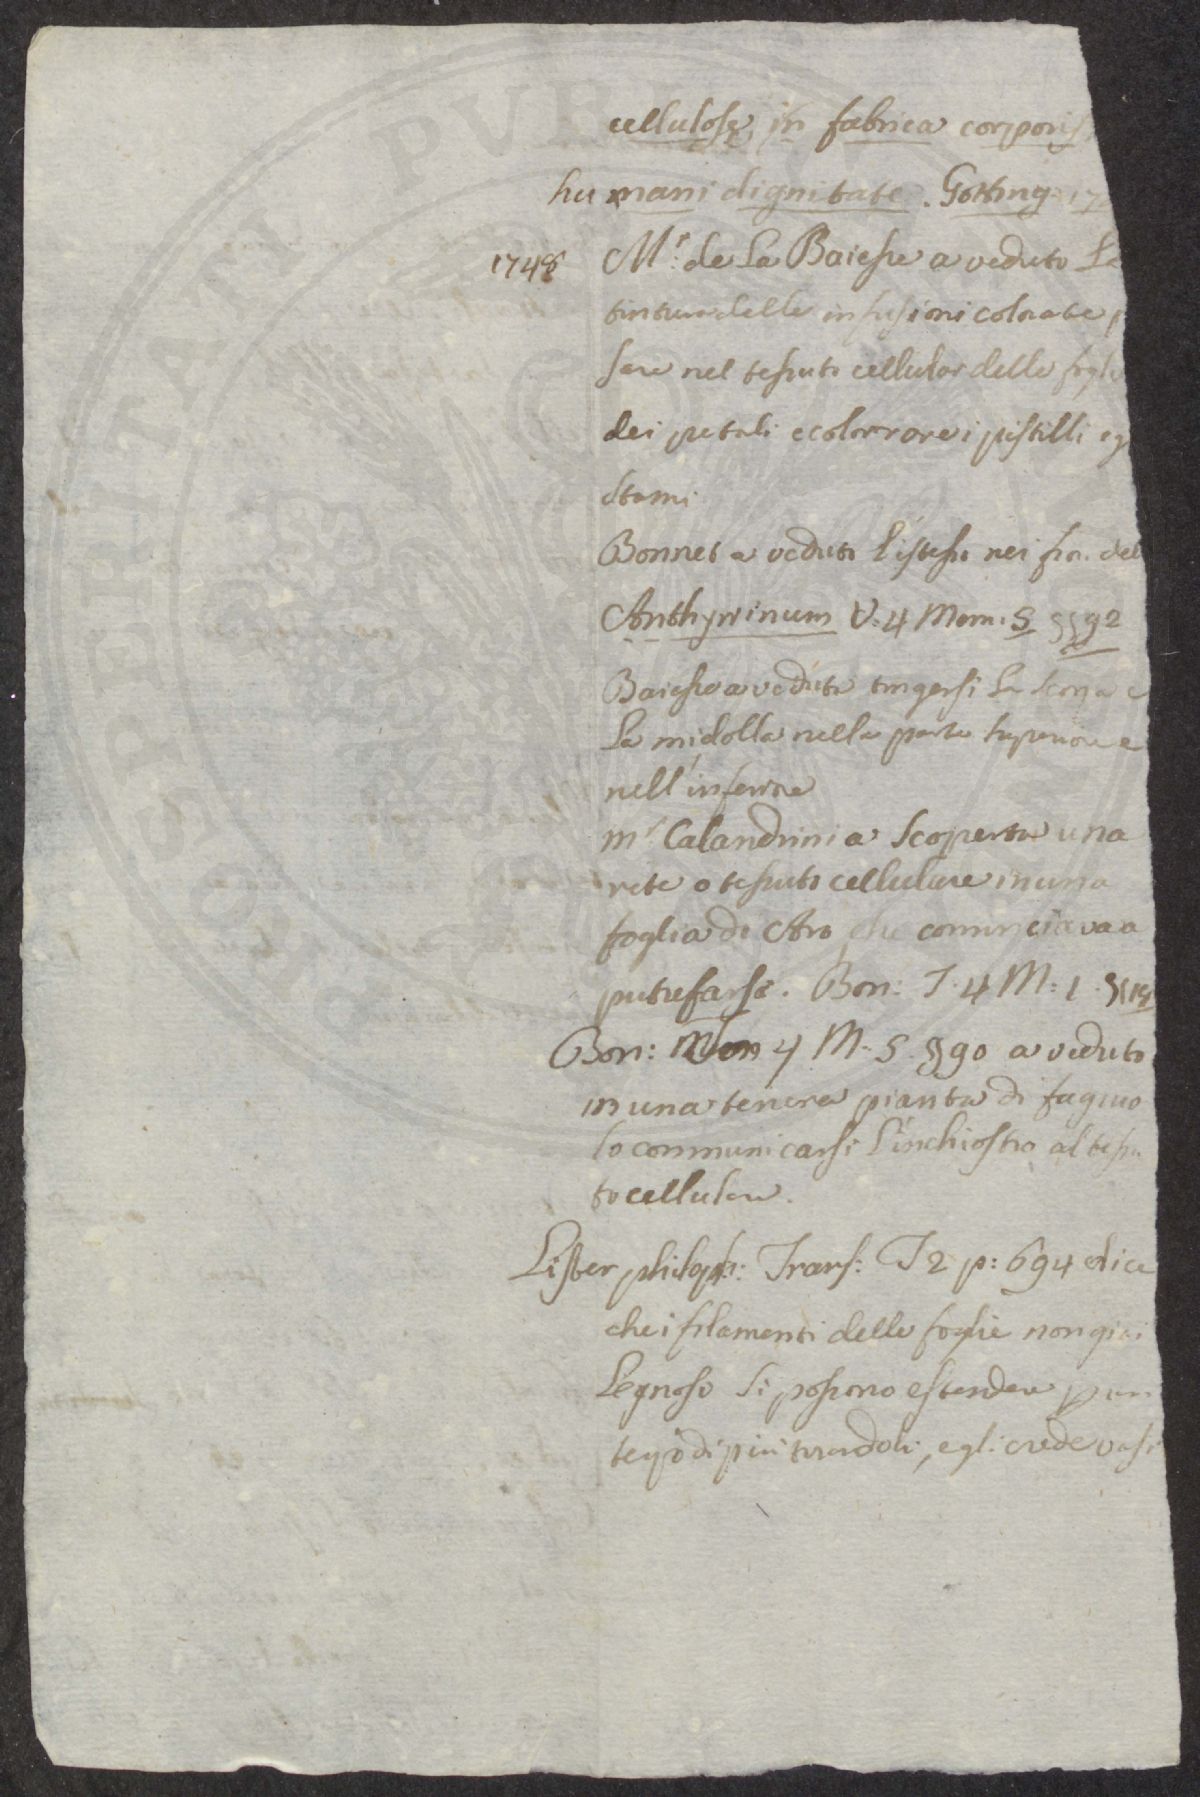 cellulosę in fabrica corporis
humani dignitate. Gotting: 17
1748 Mr: de La Baiesse a veduto La
tintura delle infusioni colorate p
sare nel tessuto cellular delle fogli
dei petali e colorrare i pistilli e g
stami
Bonnet a veduto l'istesso nei fio. del
Anthyrrinum V. 4 Mem. 5 §§ 92
Baiesse a veduto tingersi la scorza e
La midolla nella parte superiore e
nell'inferiore
mr Calandrini a scoperta una
rete o tessuto cellulare in una
foglia di Aro che cominciava a
putrefarsi. Bon: T. 4 M: 1.
Bon: 4 M. 5. §§ 90 a veduto
in una tenera pianta di fagiuo
lo communicarsi l'inchiostro al tessu
to cellulare.
Lister philoph: Trans: T 2 p: 694 dice
che i filamenti delle foglie non giai
Legnose si possono estendere p un
terzo di piu tirandoli, egli crede vasi
PVBLI
PROSPERITATI